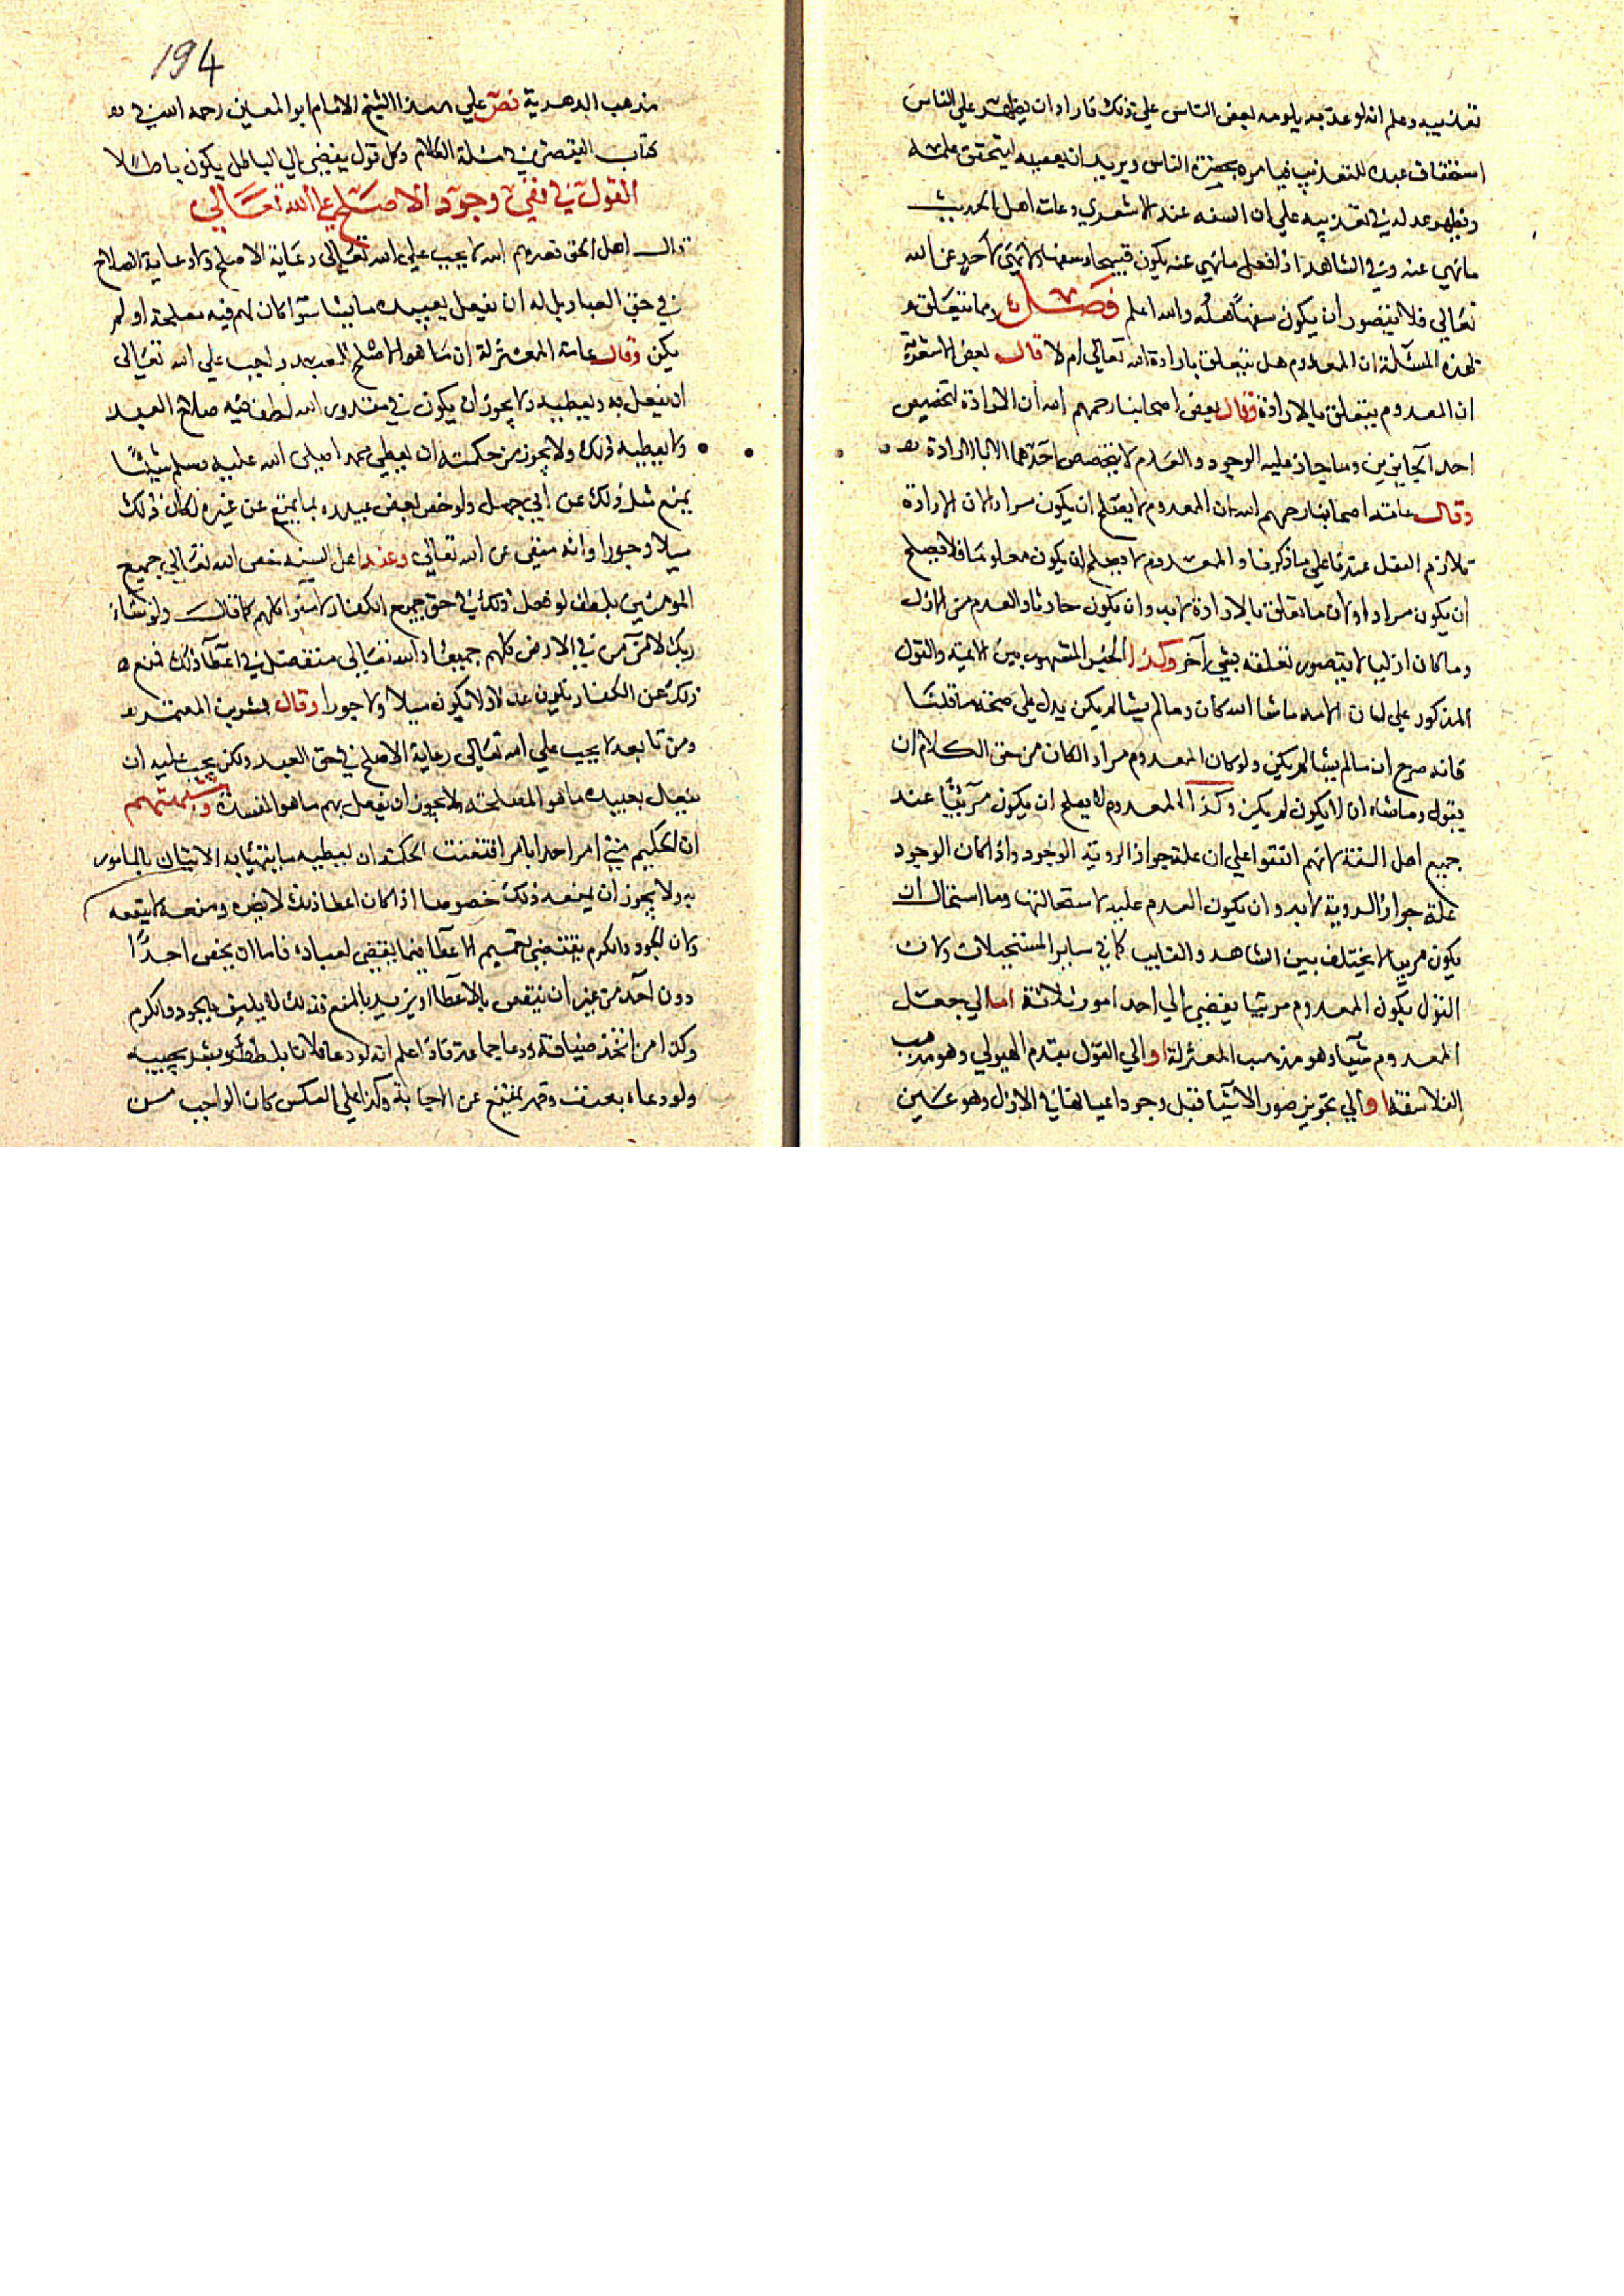 تعذيبه وعلم انه لو عذبه يلومه بعض الناس على ذلك فاراد ان يظهر على الناس
استحقاق عبده للتعذيب فيامره بحضرة الناس ويريد ان يعصيه ليتحقق علمه
ويظهر عدله في تعذيبه على ان السفه عند الاشعري وعامة اهل الحديث
ما نهي عنه وفي الشاهد اذا فعل ما نهي عنه يكون قبيحا وسفها ولا نهي لاحد عن الله
تعالى فلا يتصور ان يكون سفها منه والله اعلم فصل ومما يتعلق
بهذه المسئلة ان المعدوم هل يتعلق بارادة الله تعالى ام لا قال بعض الاشعرية
ان المعدوم يتعلق بالارادة وقال بعض اصحابنا رحمهم الله ان الارادة لتخصيص
احد الجايزين وما جاز عليه الوجود والعدم لا يتخصص احدهما الا بالارادة
وقال عامة اصحابنا رحمهم الله ان المعدوم لا يصلح ان يكون مرادا لان الارادة
تلازم الفعل عندنا على ما ذكرنا والمعدوم لا يصلح ان يكون معلوما فلا يصلح
ان يكون مرادا ولان ما تعلق بالارادة لا بد وان يكون حادثا والعدم من الازل
وما كان ازليا لا يتصور تعلقه بشي آخر وكذا الخبر المشهور بين الامة والقول
المذكور على لسان الامه ما شا الله كان وما لم يشا لم يكن يدل على صحة ما قلنا
فانه صرح ان ما لم يشا لم يكن ولو كان المعدوم مرادا لكان من حق الكلام ان
يقول وما شاء ان لا يكون لم يكن وكذا المعدوم لا يصلح ان يكون مرئيا عند
جميع اهل السنة لانهم اتفقوا على ان علة جواز الروية الوجود واذا كان الوجود
علة جواز الروية لا بد وان يكون العدم علية لاستحالتها وما استحال ان
يكون مرييا لا يختلف بين الشاهد والغايب كما في ساير المستحيلات ولان
القول بكون المعدوم مرئيا يفضي الى احد امور ثلاثة اما الى جعل
المعدوم شيا وهو مذهب المعتزلة او الى القول بقدم الهيولي وهو مذهب
الفلاسفة او الى تجويز صور الاشيا قبل وجود اعيانها في الازل وهو عين
194
مذهب الدهرية نص على هذا الشيخ الامام ابو المعين رحمه الله في
كتاب التبصرة في مسئلة الكلام وكل قول يفضي الى الباطل يكون باطلا
القول في نفي وجود الاصلح على الله تعالى
قال اهل الحق نصرهم الله لا يجب على الله تعالى رعاية الاصلح ولا رعاية الصلاح
في حق العباد بل له ان يفعل بعبيده ما يشا سوا كان لهم فيه مصلحة او لم
يكن وقال عامة المعتزلة ان ما هو الاصلح للعبد واجب على الله تعالى
ان يفعل به ويعطيه ولا يجوز ان يكون في مقدور الله لطف فيه صلاح العبد
ولا يعطيه ذلك ولا يجوز من حكمته ان يعطي محمدا صلى الله عليه وسلم شيئا
يمنع مثل ذلك عن ابي جهل ولو خص بعض عبيده بما يمنع عن غيره لكان ذلك
ميلا وجورا وانه منفي عن الله تعالى وعند اهل السنة خص الله تعالى جميع
المومنين بلطف لو فعل ذلك في حق جميع الكفار لامنوا كلهم كما قال ولو شاء
ربك لامن من في الارض كلهم جميعا والله تعالى متفضل في اعطآ ذلك فمنع
ذلك عن الكفار يكون عدلا ولا يكون ميلا ولا جورا وقال بشر بن المعتمر
ومن تابعه لا يجب على الله تعالى رعاية الاصلح في حق العبد ولكن يجب عليه ان
يفعل بعبيده ما هو المصلحة ولا يجوز ان يفعل بهم ما هو المفسدة وشبهتهم
ان الحكيم متى امر احدا بامر اقتضت الحكمة ان يعطيه ما يتهيا به الاتيان بالمامور
به ولا يجوز ان يمنعه ذلك خصوصا اذا كان اعطا ذلك لا يضره ومنعه لا ينفعه
ولان الجود والكرم يقتضي تعميم الاعطآ فيما يفيض لعباده فاما ان يخص احدا
دون احد من غير ان ينقص بالاعطآ او يزيد بالمنع فذلك لا يليق بالجود والكرم
وكذا من اتخذ ضيافة ودعا جماعة فاذا علم انه لو دعا فلانا بلطف وبشر يجيبه
ولو دعاه بعنف وقهر يمتنع عن الاجابة وكذا على العكس كان الواجب من